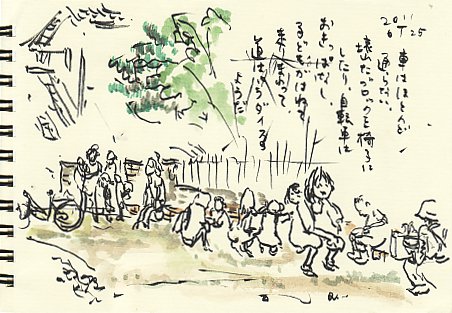 2011
6 25
車はほとんど
通らない。
壊れたブロックを椅子に
したり 自転車は
おきっぱなし
子どもがはねて
まわって
道はパラダイスの
ようだ